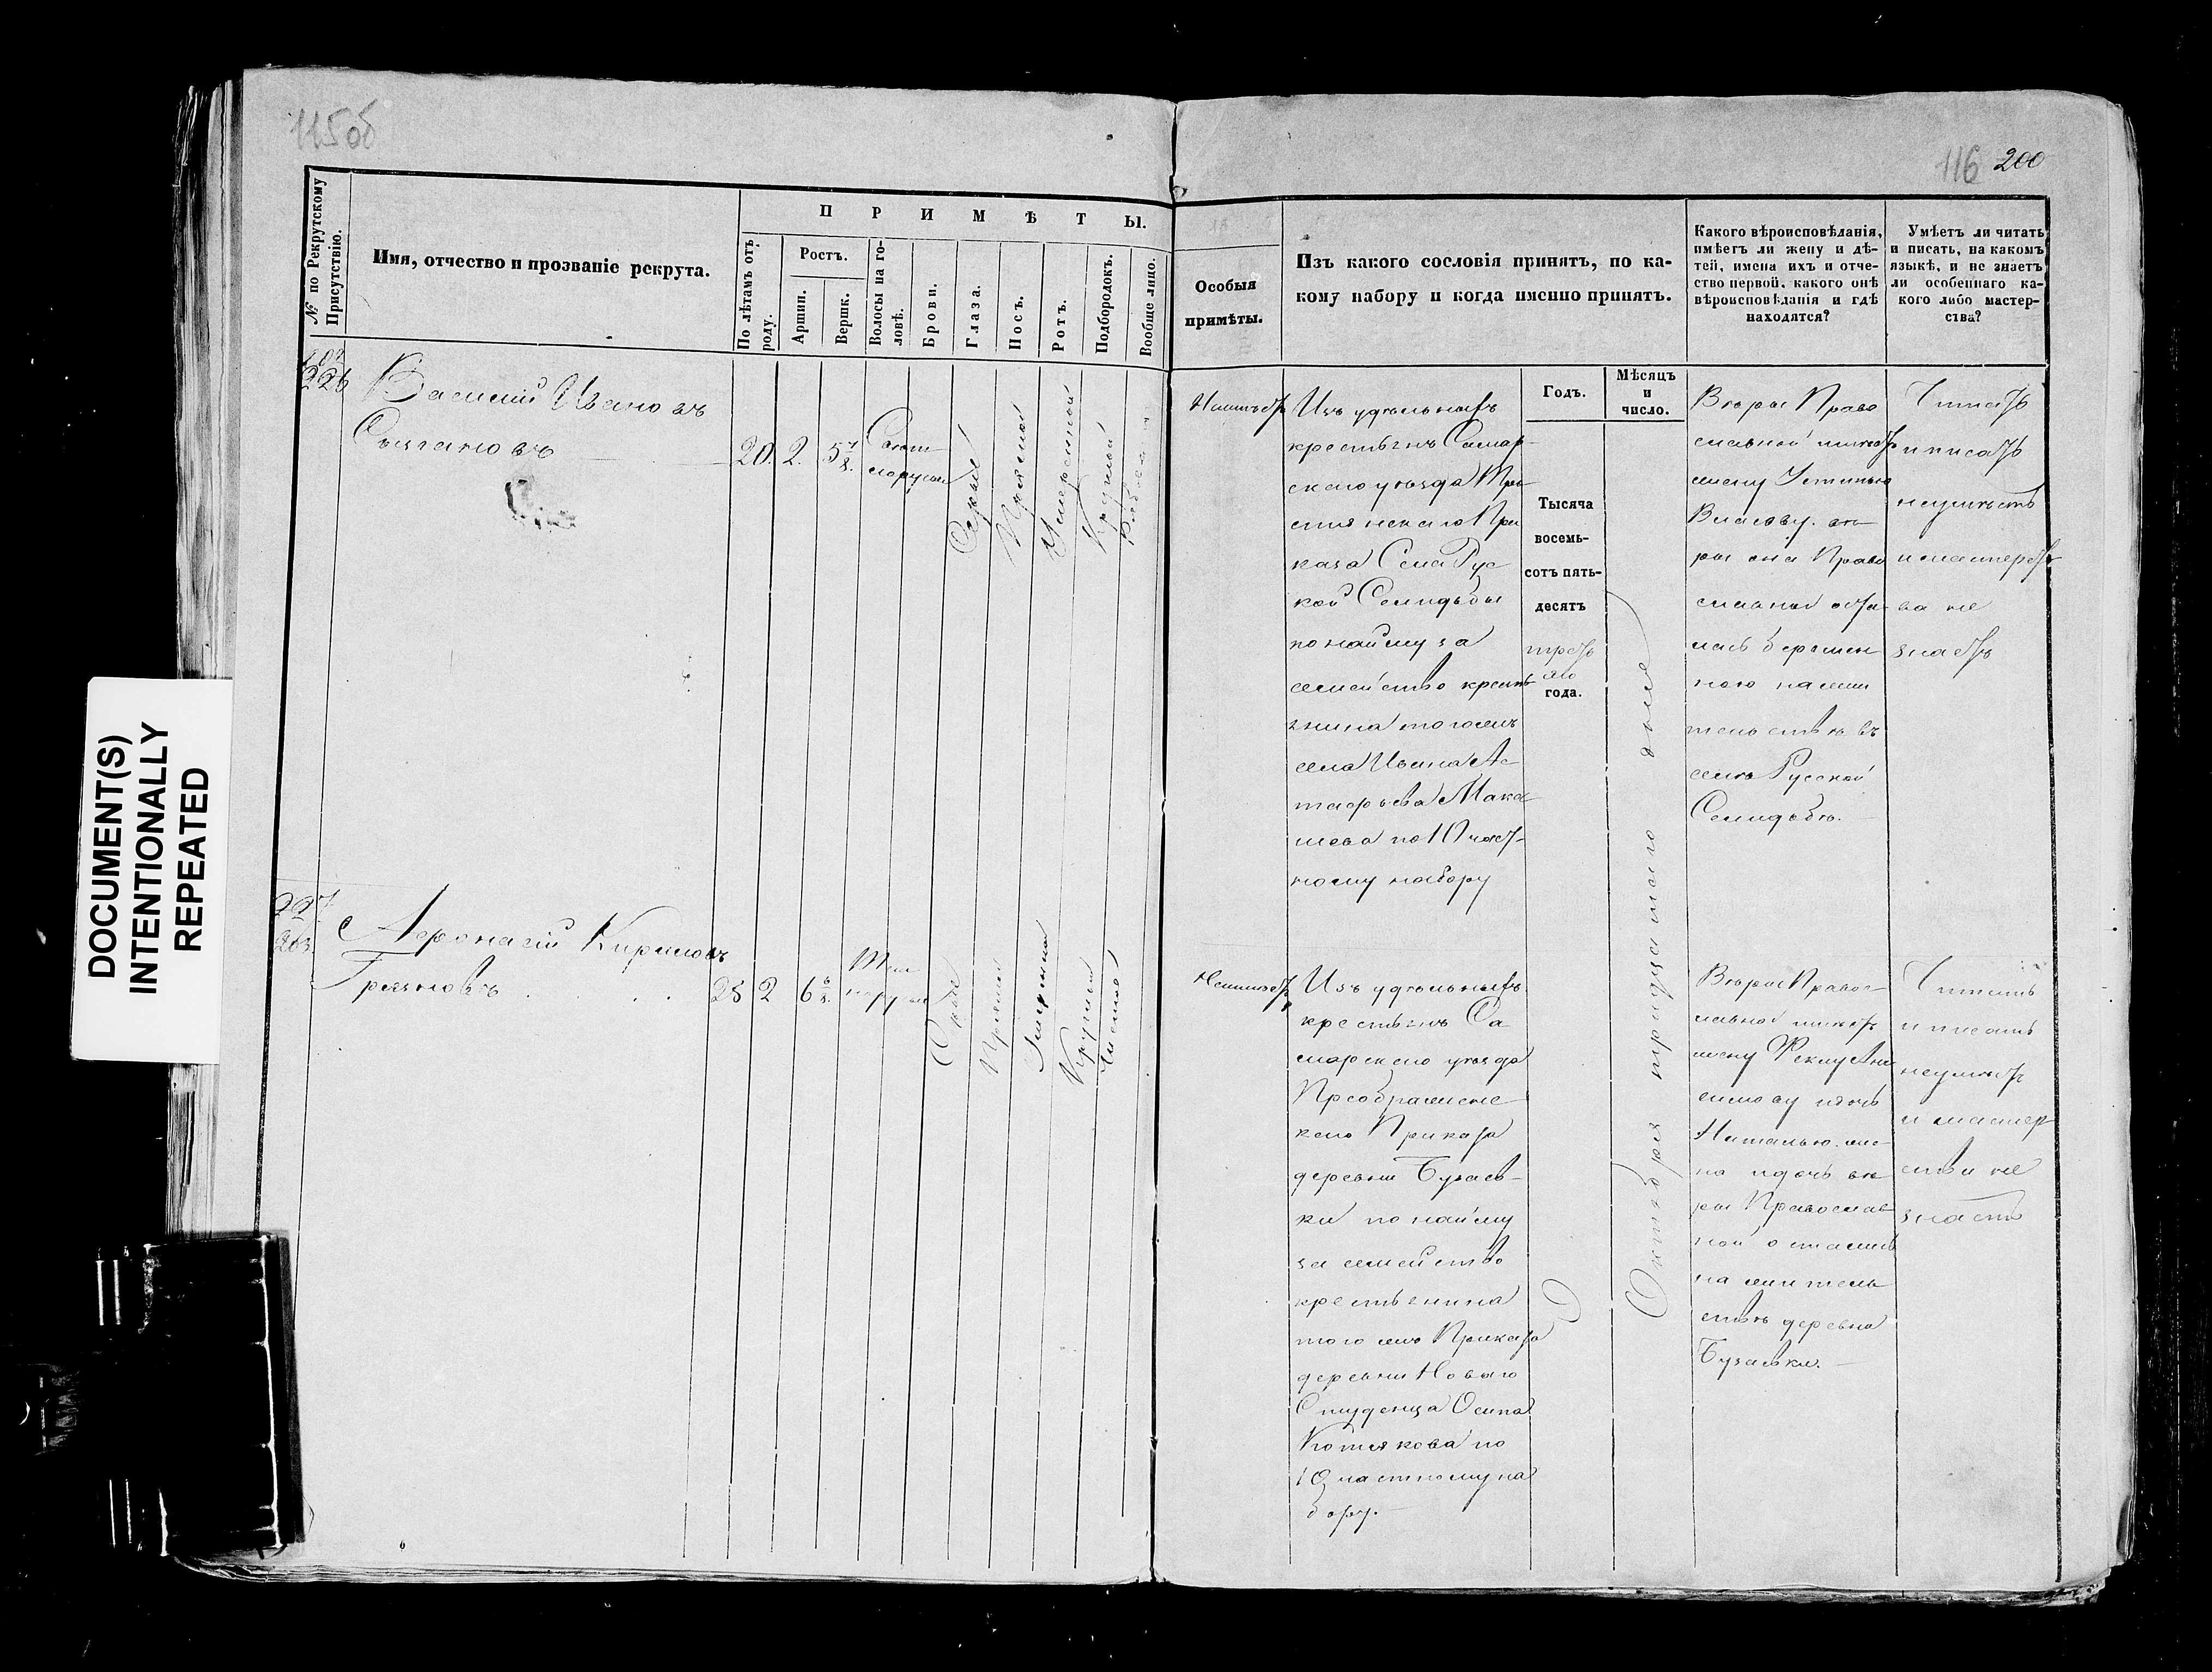 115об
116 200
№ по Рекрутскому Присутствію.
Имя, отчество и прозваніе рекрута.
ПРИМѢТЫ.
По лѣтамъ отъ роду.
Ростъ.
Аршин.
Вершк.
Волосы на го-
ловѣ.
Брови.
Глаза.
Носъ.
Ротъ.
Подбородокъ.
Вообще лицо.
Особыя
примѣты.
Изъ какого сословія принятъ, по ка-
кому набору и когда именно принятъ.
Какого вѣроисповѣданія,
имѣетъ ли жену и дѣ-
тей, имена ихъ и отче-
ство первой, какого онѣ
вѣроисповѣданія и гдѣ
находятся?
Умѣетъ ли читать
и писать, на какомъ
языкѣ, и не знаетъ
ли особеннаго ка-
кого либо мастер-
ства?
Годъ.
Мѣсяцъ
и
число.
226
Василій Ивановъ
20. 2. 5
Свѣт
лорусые
Серые
Прямой
Умеренной
Круглой
Неимѣетъ
Изъ удѣльныхъ
крестьянъ Самар-
скаго уѣзда
каза Села Рус
кой Селидьбы
по найму за
семейство кресть
янина тогожъ
села Ивана Ас
тафьева
шева по 10 част-
ному набору
Тысяча
восемь-
сотъ пять-
десятъ
треть
яго
года.
Октября тридцатого дня
Вѣры Право
славной имѣетъ
жену Устинью
Власову. вѣ
ры она Право
славной оста-
лась беремен
ною на жи
тельствѣ въ
селѣ Русской
Селидьбѣ.
Читать
и писать
неумѣетъ
и мастерст
ва не
знаетъ
227
263
Афонасій Кириловъ
Грязновъ
25 2 6
Тем
норусые
Серые
Прямой
Умеренной
Круглой
Чистое
Неимѣетъ
Изъ удѣльныхъ
крестьянъ Са
марскаго уѣзда
Преображенс
каго Приказа
деревни Бузаев-
ки по найму
за семейство
крестьянина
того же Приказа
деревни Новаго
Студенца Осипа
Котякова по
10 частному на
бору.
Вѣры Правос-
лавной имѣетъ
жену Феклу Ани
симову и дочь
Наталью. же-
на и дочь вѣ
ры Православ
ной остались
на житель
ствѣ деревни
Бузаевки.
Читать
и писать
неумѣетъ
и мастер
ства не
знаетъ
DOCUMENT(S)
INTENTIONALLY
REPEATED